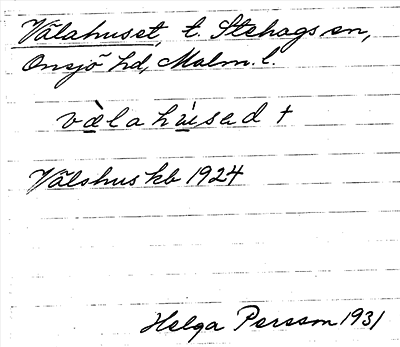 Välahuset, t. Stehags sn,
Onsjö hd, Malm. l.
vä̀lahúsad †
Välshus kb 1924
Helga Persson 1931